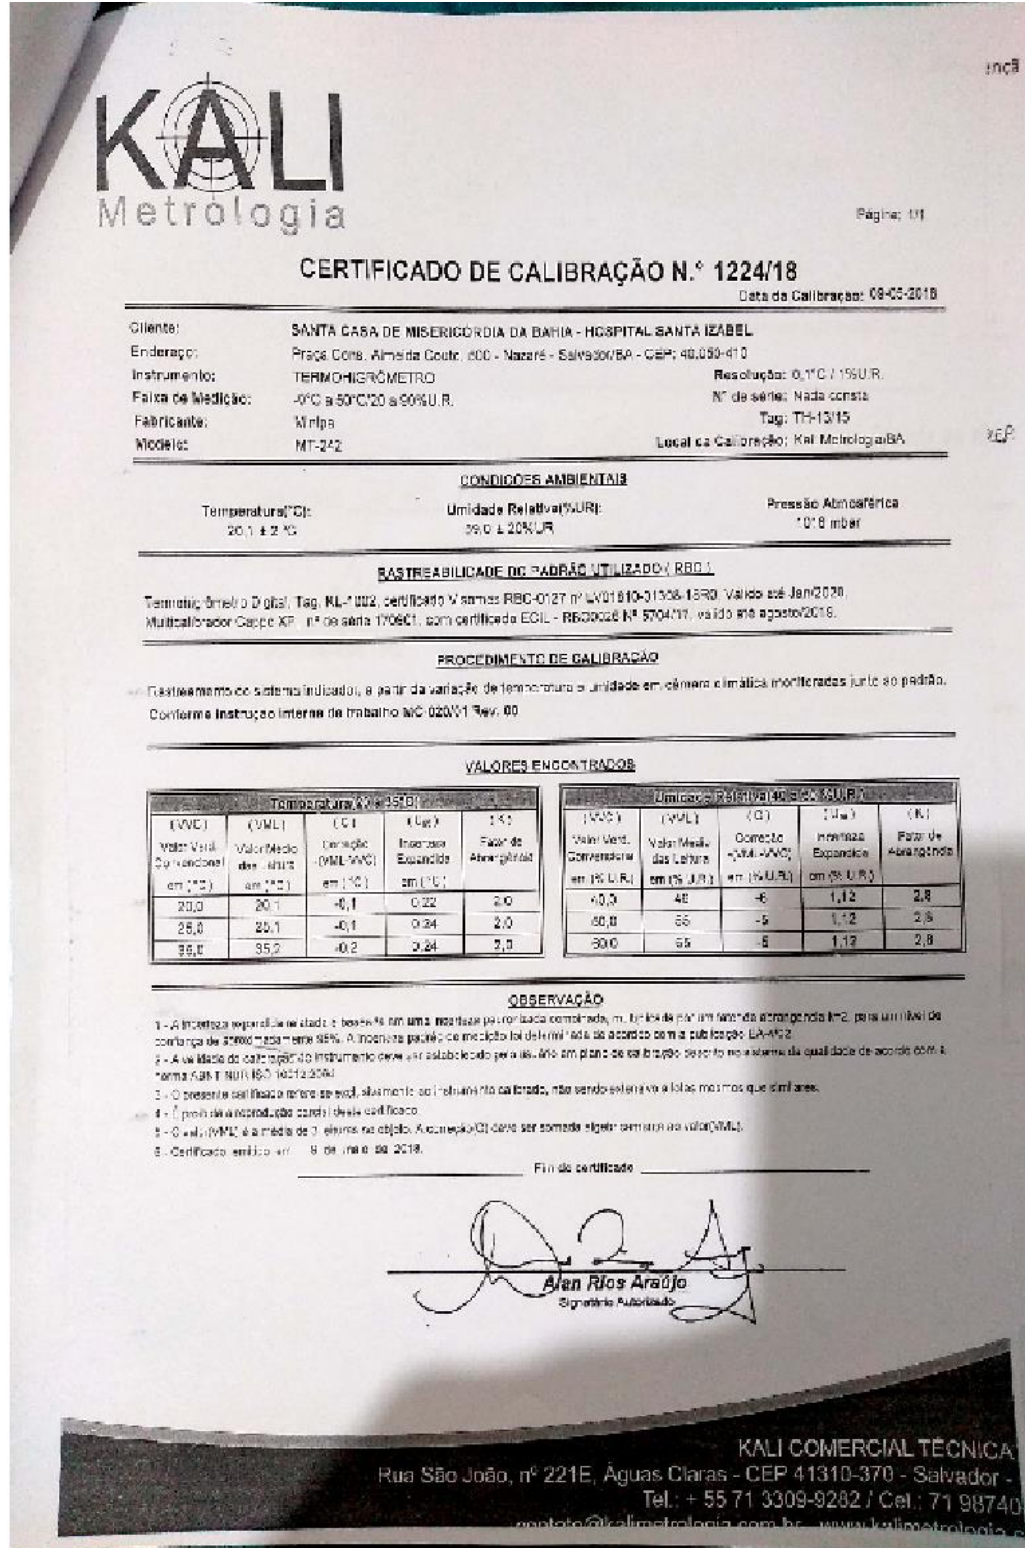 ença
KALI
Metrologia
Página: 1/1
CERTIFICADO DE CALIBRAÇÃO N.º 1224/18
Data da Calibração: 09-05-2018
Cliente: SANTA CASA DE MISERICÓRDIA DA BAHIA - HOSPITAL SANTA IZABEL
Endereço: Praça Cons. Almeida Couto, 500 - Nazaré - Salvador/BA - CEP: 40.050-410
Instrumento: TERMOHIGRÔMETRO Resolução: 0,1°C / 1%U.R.
Faixa de Medição: -0°C a 50°C/20 a 90%U.R. Nº de série: Nada consta
Fabricante: Minipa Tag: TH-13/15
Modelo: MT-242 Local da Calibração: Kali Metrologia/BA
CONDIÇÕES AMBIENTAIS
Temperatura(°C): Umidade Relativa(%UR): Pressão Atmosférica
20,1 ± 2 °C ± 20%UR 1018 mbar
RASTREABILIDADE DO PADRÃO UTILIZADO ( RBC )
Termohigrômetro Digital, Tag. KL-1002, certificado Visomes RBC-0127 nº Válido até Jan/2020.
Multicalibrador nº de série 170901, com certificado ECIL - Nº 5704/17, valido até agosto/2019.
PROCEDIMENTO DE CALIBRAÇÃO
Rastreamento do sistema indicador, a partir da variação de temperatura e umidade em câmera climática monitoradas junto ao padrão.
Conforme Instrução interna de trabalho MC-020/01 Rev. 00
VALORES ENCONTRADOS
Temperatura(20 a 35°C)
(VVC) (VML) (C) (K)
Valor Verd. Convencional Valor Médio das Leitura Correção -(VML-VVC) Incerteza Expandida Fator de Abrangência
em (°C) em (°C) em (°C) em (°C)
20,0 20,1 -0,1 0,22 2,0
25,0 25,1 -0,1 0,24 2,0
35,0 35,2 -0,2 0,24 2,0
Umidade Relativa
(VVC) (VML) (C) (K)
Valor Verd. Convencional Valor Médio das Leitura Correção -(VML-VVC) Incerteza Expandida Fator de Abrangência
em (% U.R.) em (% U.R.) em (% U.R.) em (% U.R.)
40,0 46 -6 1,12 2,8
-5 1,12 2,8
65 1,12 2,8
OBSERVAÇÃO
1 - A Incerteza expandida relatada é baseada em uma incerteza padronizada combinada, multiplicada por um fator de abrangência k=2, para um nível de
confiança de aproximadamente 95%. A Incerteza padrão de medição foi determinada de acordo com a publicação EA-4/02.
2 - A validade da calibração do instrumento deve ser estabelecido pelo usuário em plano de calibração descrito no sistema da qualidade de acordo com a
norma ABNT NBR ISO 10012:2004
3 - O presente certificado refere-se exclusivamente ao instrumento calibrado, não sendo extensivo a lotes mesmos que similares.
4 - É proibida a reprodução parcial deste certificado.
5 - O valor(VML) é a média de 3 leituras no objeto. A correção(C) deve ser somada algebricamente ao valor(VML).
6 - Certificado emitido em 9 de maio de 2018.
Fim do certificado
Alan Rios Araújo
Signatário Autorizado
KALI COMERCIAL TÉCNICA
Rua São João, nº 221E, Águas Claras - CEP 41310-370 - Salvador -
Tel.: + 55 71 3309-9282 / Cel.: 71 98740
contato@kalimetrologia.com.br - www.kalimetrologia.c